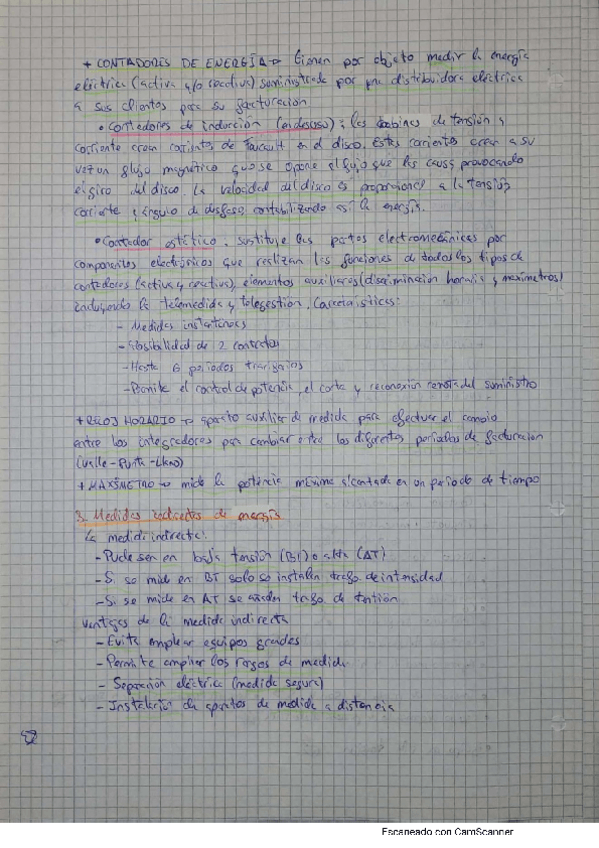 + CONTADORES DE ENERGÍA → tienen por objeto medir la energía
eléctrica (activa y/o reactiva) suministrada por una distribuidora eléctrica
a sus clientes para su facturación
• Contadores de inducción (en desuso): las bobinas de tensión y
corriente crean corrientes de Foucault en el disco. Estas corrientes crean a su
vez un flujo magnético que se opone al flujo que las causa provocando
el giro del disco. La velocidad del disco es proporcional a la tensión,
corriente y ángulo de desfase, contabilizando así la energía.
• Contador estático: sustituye las partes electromecánicas por
componentes electrónicos que realizan las funciones de todos los tipos de
contadores (activa y reactiva), elementos auxiliares (discriminación horaria y maxímetros)
incluyendo la telemedida y telegestión. Características:
- Medidas instantáneas
- Posibilidad de 2 contratos
- Hasta 6 periodos tarifarios
- Permite el control de potencia, el corte y reconexión remota del suministro
+ RELOJ HORARIO → aparato auxiliar de medida para efectuar el cambio
entre los integradores para cambiar entre los diferentes periodos de facturación
(Valle-Punta-Llano)
+ MAXÍMETRO → mide la potencia máxima alcanzada en un periodo de tiempo
3. Medidas indirectas de energía
La medida indirecta:
- Puede ser en baja tensión (BT) o alta (AT)
- Si se mide en BT solo se instalan trafo de intensidad
- Si se mide en AT se añaden trafo de tensión
Ventajas de la medida indirecta
- Evita emplear equipos grandes
- Permite ampliar los rangos de medida
- Separación eléctrica (medida segura)
- Instalación de aparatos de medida a distancia
Escaneado con CamScanner